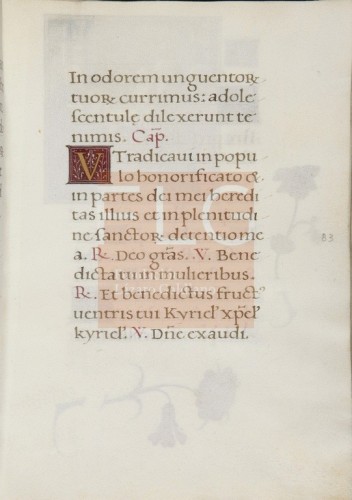 In odorem unguentoꝝ
tuoꝝ currimus: adole
scentulę dilexerunt te
nimis. Cap̃.
V
Tradicaui in popu
lo honorificato &
in partes dei mei heredi
tas illius et in plenitudi
ne sanctoꝝ detentio me
a. ℞. Deo grãs. V. Bene
dicta tu in mulieribus.
℞. Et benedictus fruct⁹
uentris tui Kyriel' xp̃el'
kyriel'. V. Dñe exaudi.
83